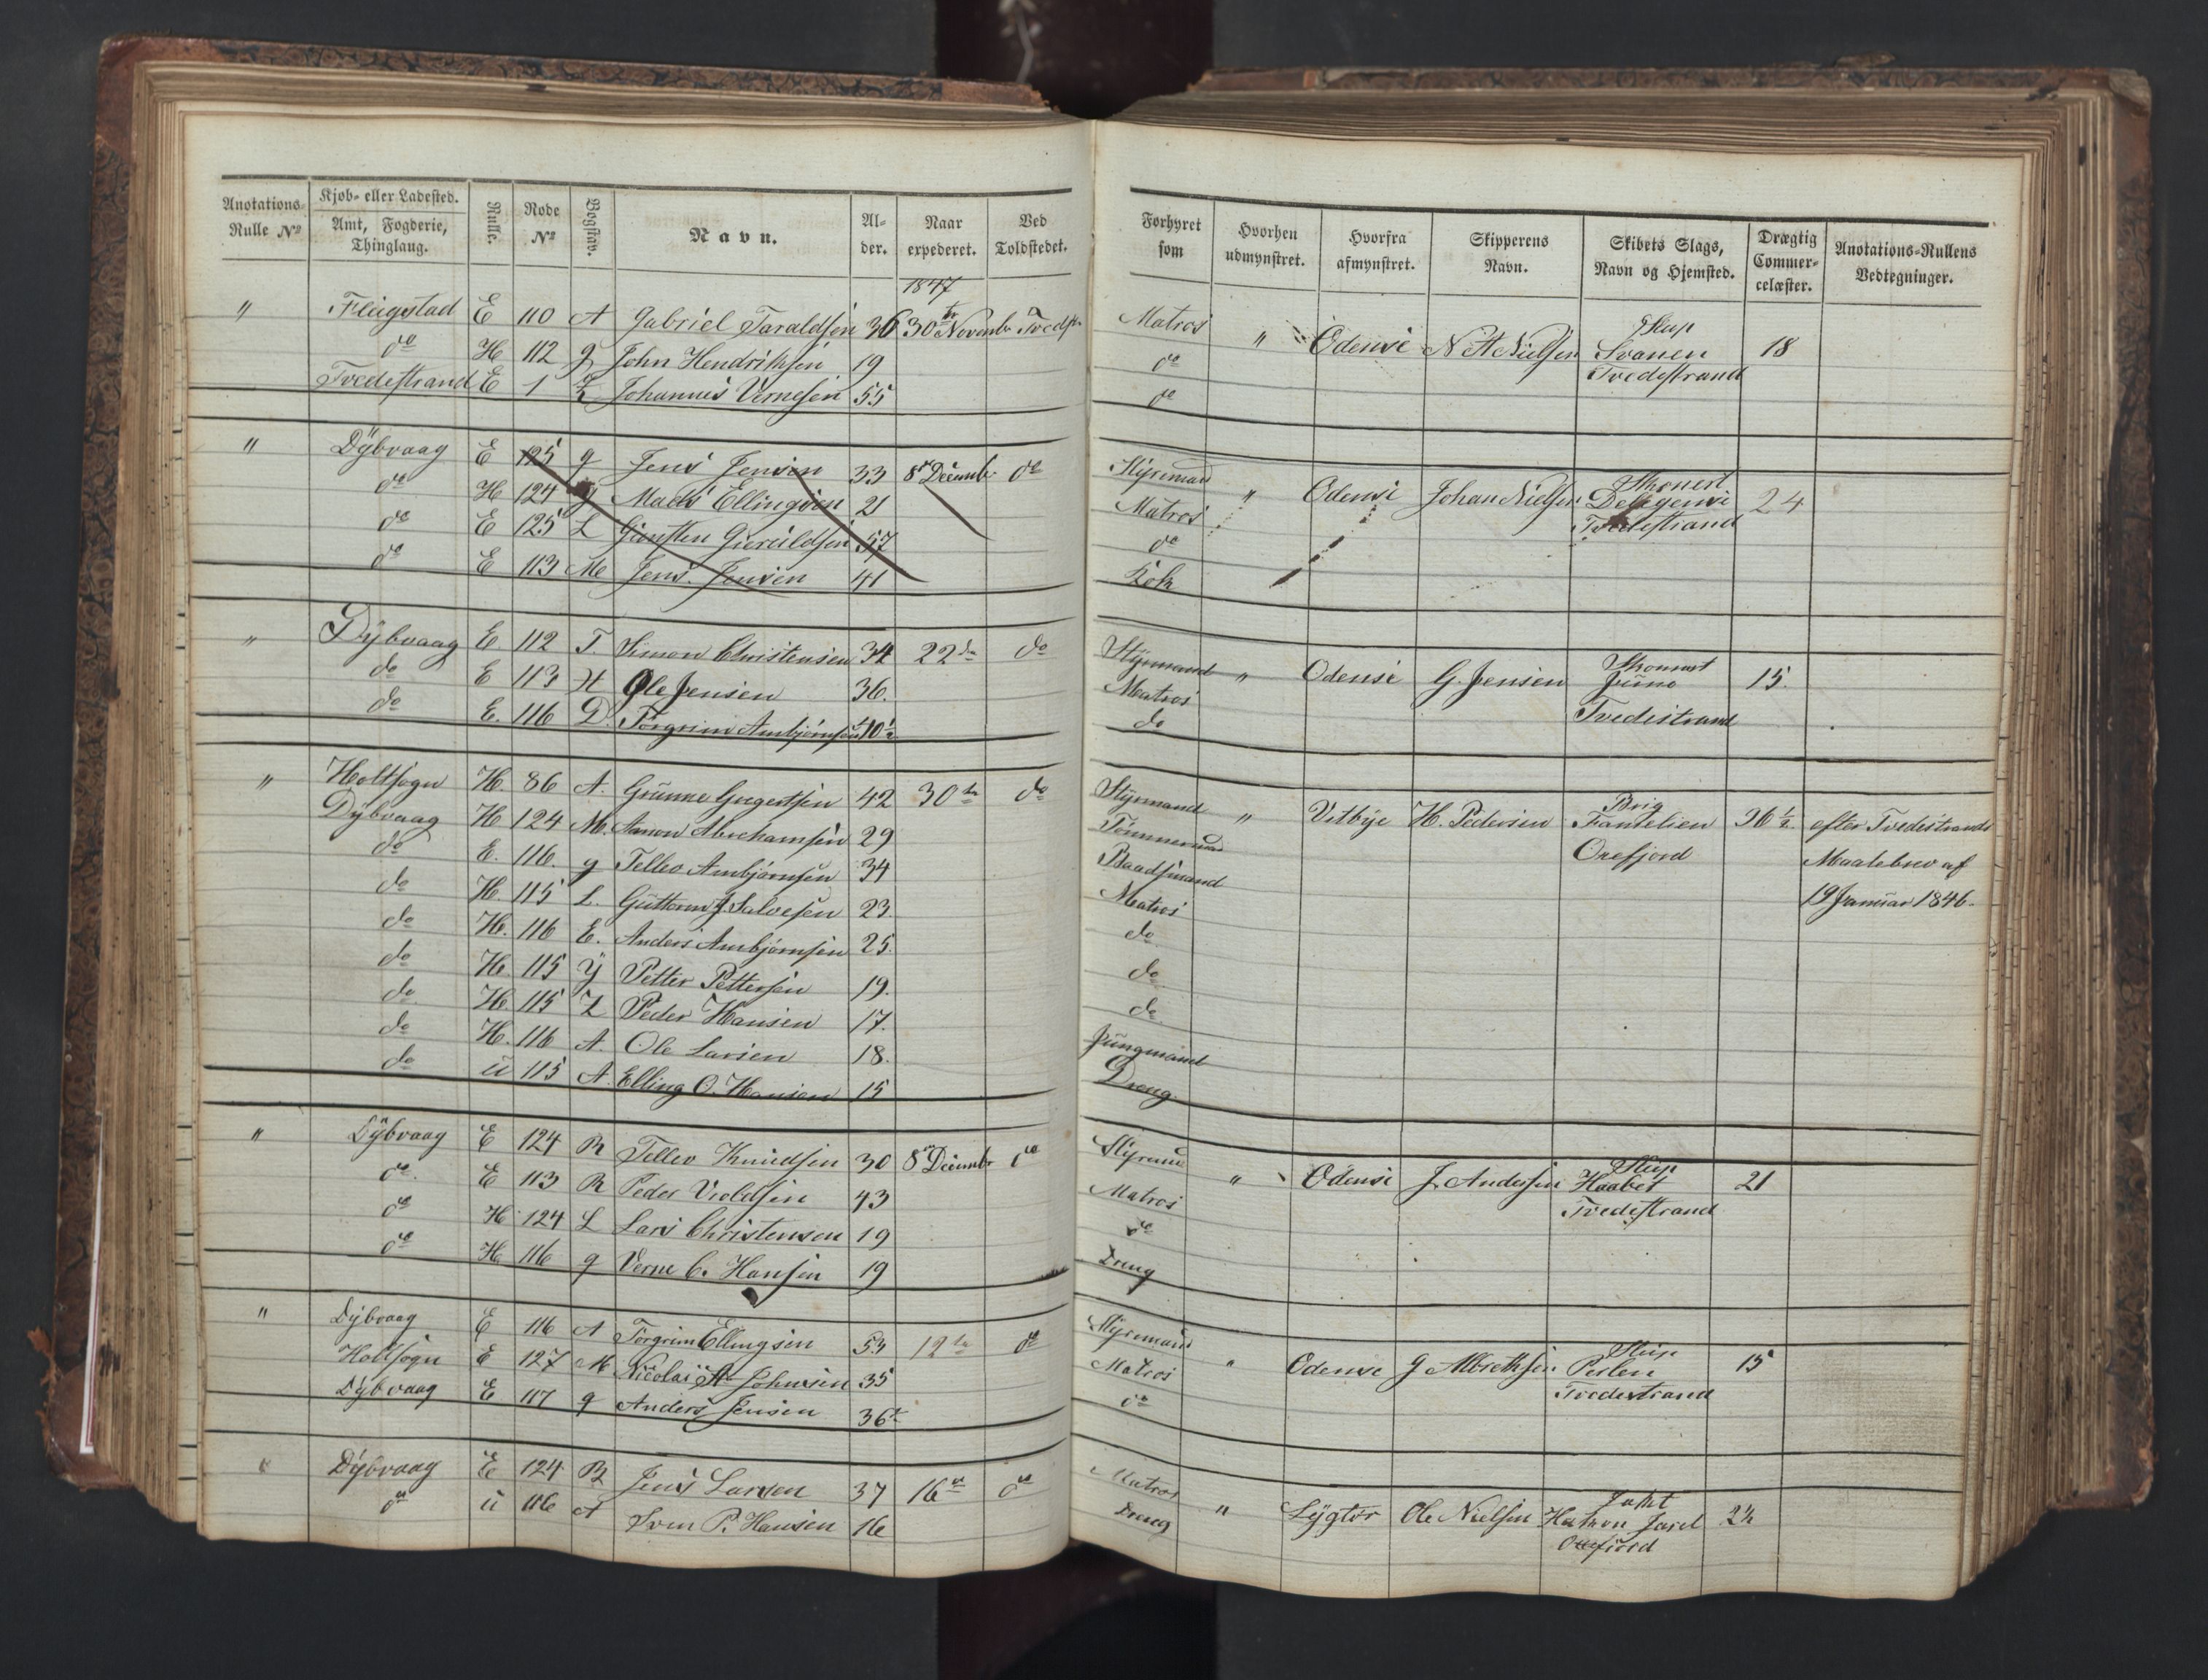 Anotations-Rulle No | Kjøb- eller Ladested. Amt, Fogderie, Thinglaug. | Rulle. | Rode No | Bogstav. | Navn. | Alder. | Naar expederet. | Ved Toldstedet. | Forhyret som | Hvorhen udmynstret. | Hvorfra afmynstret. | Skipperens Navn. | Skibets Slags, Navn og Hjemsted. | Drægtig Commercelæster. | Anotations-Rullens Vedtegninger.
1847
" | | E | 110 | A | Gabriel Taraldsen | 36 | 30te Novemb | Tvedst | Matros | " | Odense | Nielsen | Slup Svanen Tvedestrand | 18
do | H | 112 | g | John Hendriksen | 19 | do
Tvedestrand | E | 1 | | Johannes Vernesen | 55 | do
" | Dÿbvaag | E | 125 | g | Jens Jensen | 33 | 8de Decemb | do | Styrmand | " | Odense | Johan Nielsen | Skonnert Tvedestrand | 24
do | H | 124 | | Mads Ellingsen | 21 | Matros
do | E | 125 | L | | 57 | do
do | E | 113 | M | Jens Jensen | 41 | Kok
" | Dÿbvaag | E | 112 | T. | Simon Christensen | 34 | 22de | do | Styrmand | " | Odense | G. Jensen | Skonnert Juno Tvedestrand | 15.
do | E | 113 | H | Ole Jensen | 36. | Matros
do | E. | 116 | D. | Torgrim Ambjørnsen | 40½ | do
" | Holtsogn | H. | 86 | A. | Grunne Gregertsen | 42 | 30te | do | Styrmand | " | Vitbye | H. Pedersen | Brig Oxefjord | 36½ | efter Tvedestrands
Dÿbvaag | H | 124 | M. | Aanon Abrahamsen | 29 | Tømmermand | Maalebrev af
do | E. | 116. | g | Tellev Ambjørnsen | 34 | Baadsmand | 19 Januar 1846.
do | H. | 115 | L. | Guttorm J. Salvesen | 23 | Matros
do | H. | 116 | E. | Anders Ambjørnsen | 25. | do
do | H. | 115 | Ÿ | Petter Pettersen | 19. | do
do | H. | 115 | Z | Peder Hansen | 17. | do
do | H. | 116 | A. | Ole Larsen | 18. | Jungmand
do | u | 115 | A | Elling O. Hansen | 15 | Dreng.
" | Dÿbvaag | E | 124 | R | Tellev Knudsen | 30 | 8de Decemb | do | Styrmd | " | Odense | J. Andersen | Slup Haabet Tvedestrand | 21
do | E | 113 | R | Peder Vroldsen | 43 | Matros
do | H | 124 | L | Lars Christensen | 19 | do
do | H | 116 | g | Verne C. Hansen | 19 | Dreng
" | Dÿbvaag | E | 116 | A | Torgrim Ellingsen | 53 | 12te | do | Styrmand | " | Odense | G Albrethsen | Slup Perlen Tvedestrand | 15
Holtsogn | E | 127 | M | Nicolai A Johnsen | 35 | Matros
Dÿbvaag | E | 117 | g | Anders Jensen | 36 | do
" | Dÿbvaag | E | 124 | R | Jens Larsen | 37 | 16de | do | Matros | " | Lÿgtør | Ole Nielsen | Jakt Oxefjord | 2½
do | u | 116 | A | Sven P. Hansen | 16 | Dreng